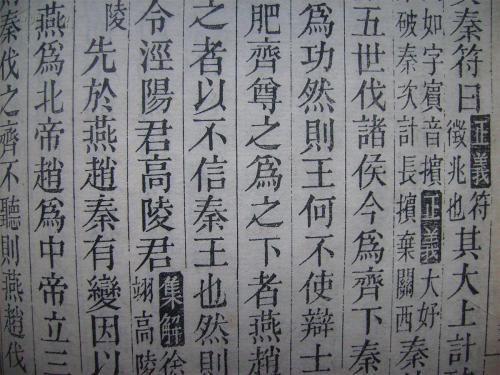 秦符曰正義符徵兆也其大上計
如字賓音擯正義大好
破秦次計長擯棄關西秦
五世伐諸侯今爲齊下秦
爲功然則王何不使辯士
肥齊尊之爲之下者燕趙
之者以不信秦王也然則
令涇陽君高陵君集解徐
翊高陵
陵先於燕趙秦有變因以
燕爲北帝趙爲中帝立三
秦伐之齊不聽則燕趙伐